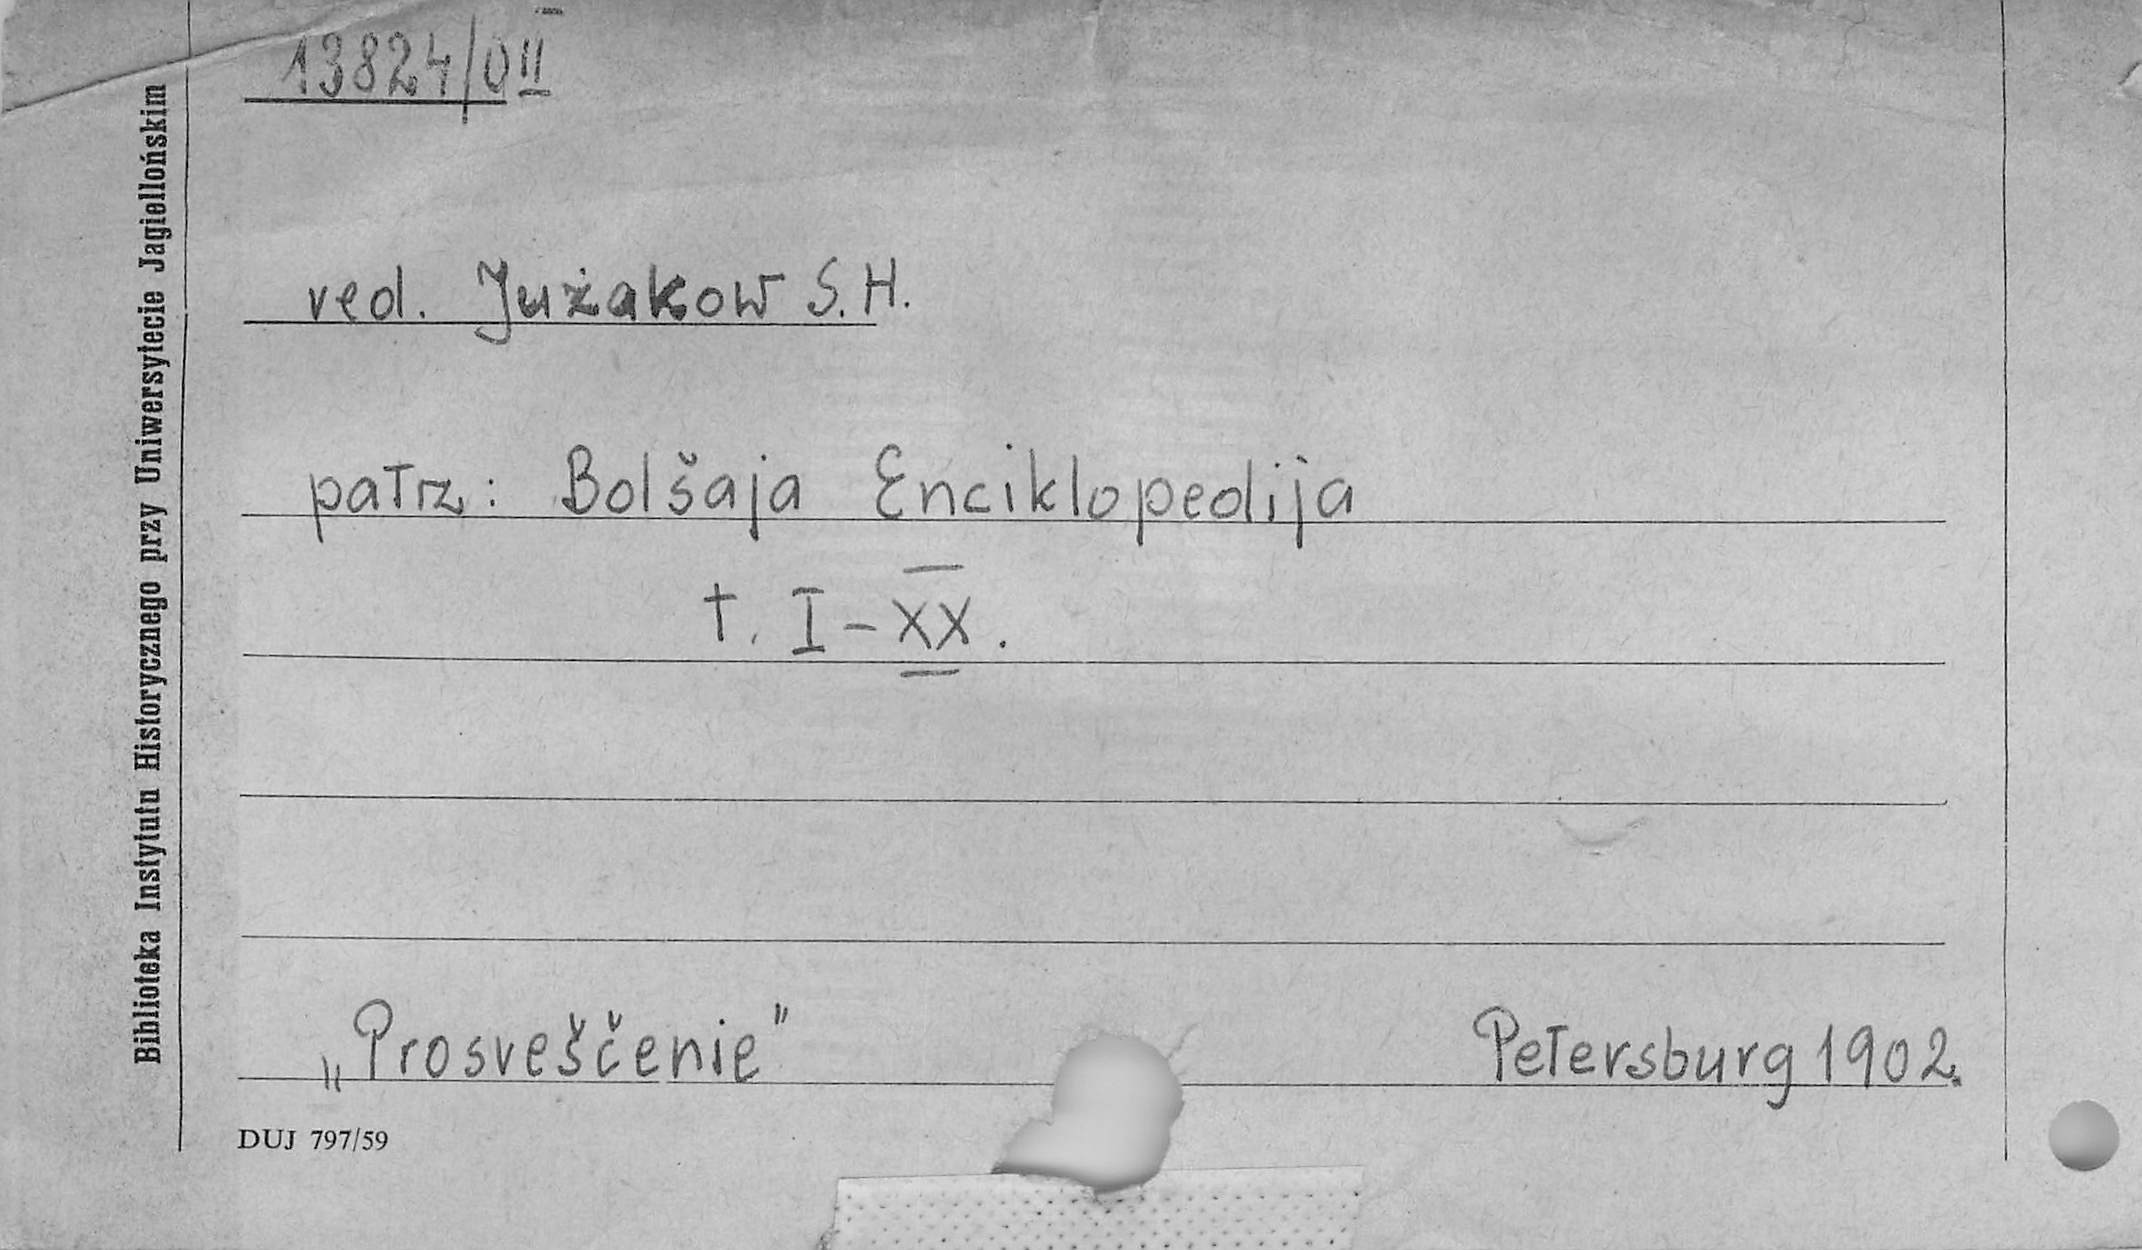 13824/0 II
red. Jużakow S.H.
patrz: Bolšaja Enciklopedija
t. I-XX.
„Prosveščenie" Petersburg 1902.
DUJ 797/59
Biblioteka Instytutu Historycznego przy Uniwersytecie Jagiellońskim